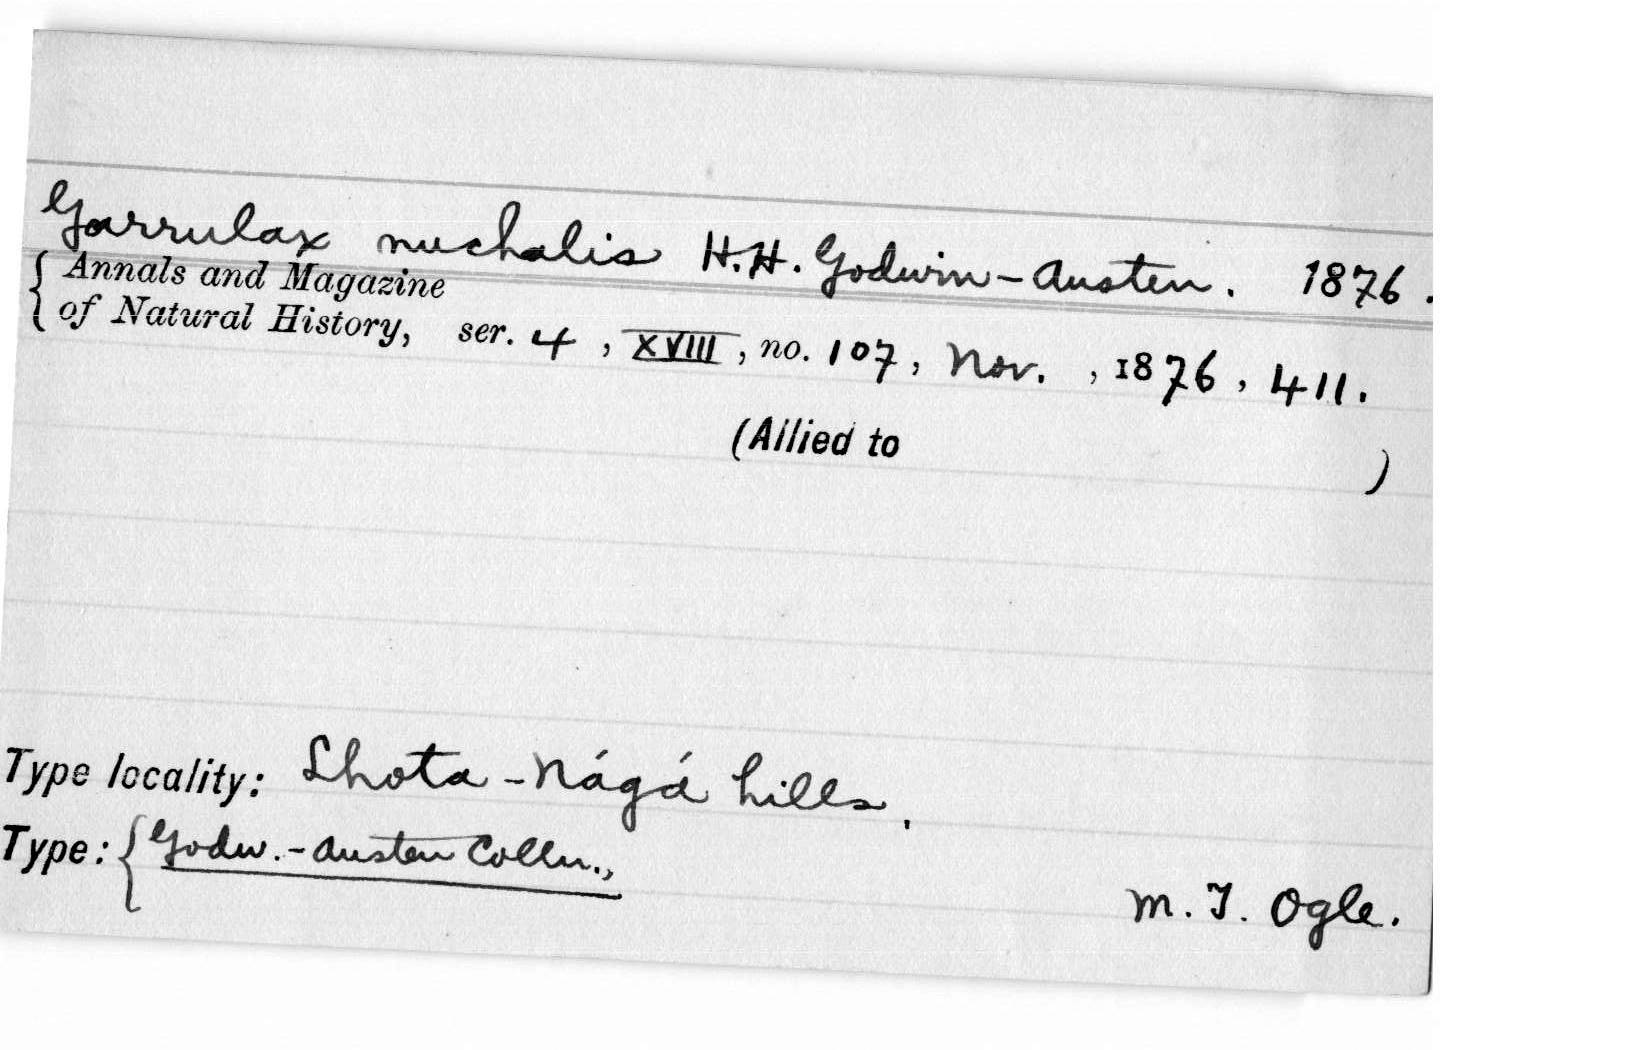 Garrulax nuchalis H.H. Godwin-Austen. 1876.
{ Annals and Magazine
of Natural History, ser. 4, XVIII, no. 107, Nov. , 1876, 411.
(Allied to )
Type locality: Lhota-Nágá hills.
Type: { Godw.-Austen Colln.,
M. J. Ogle.